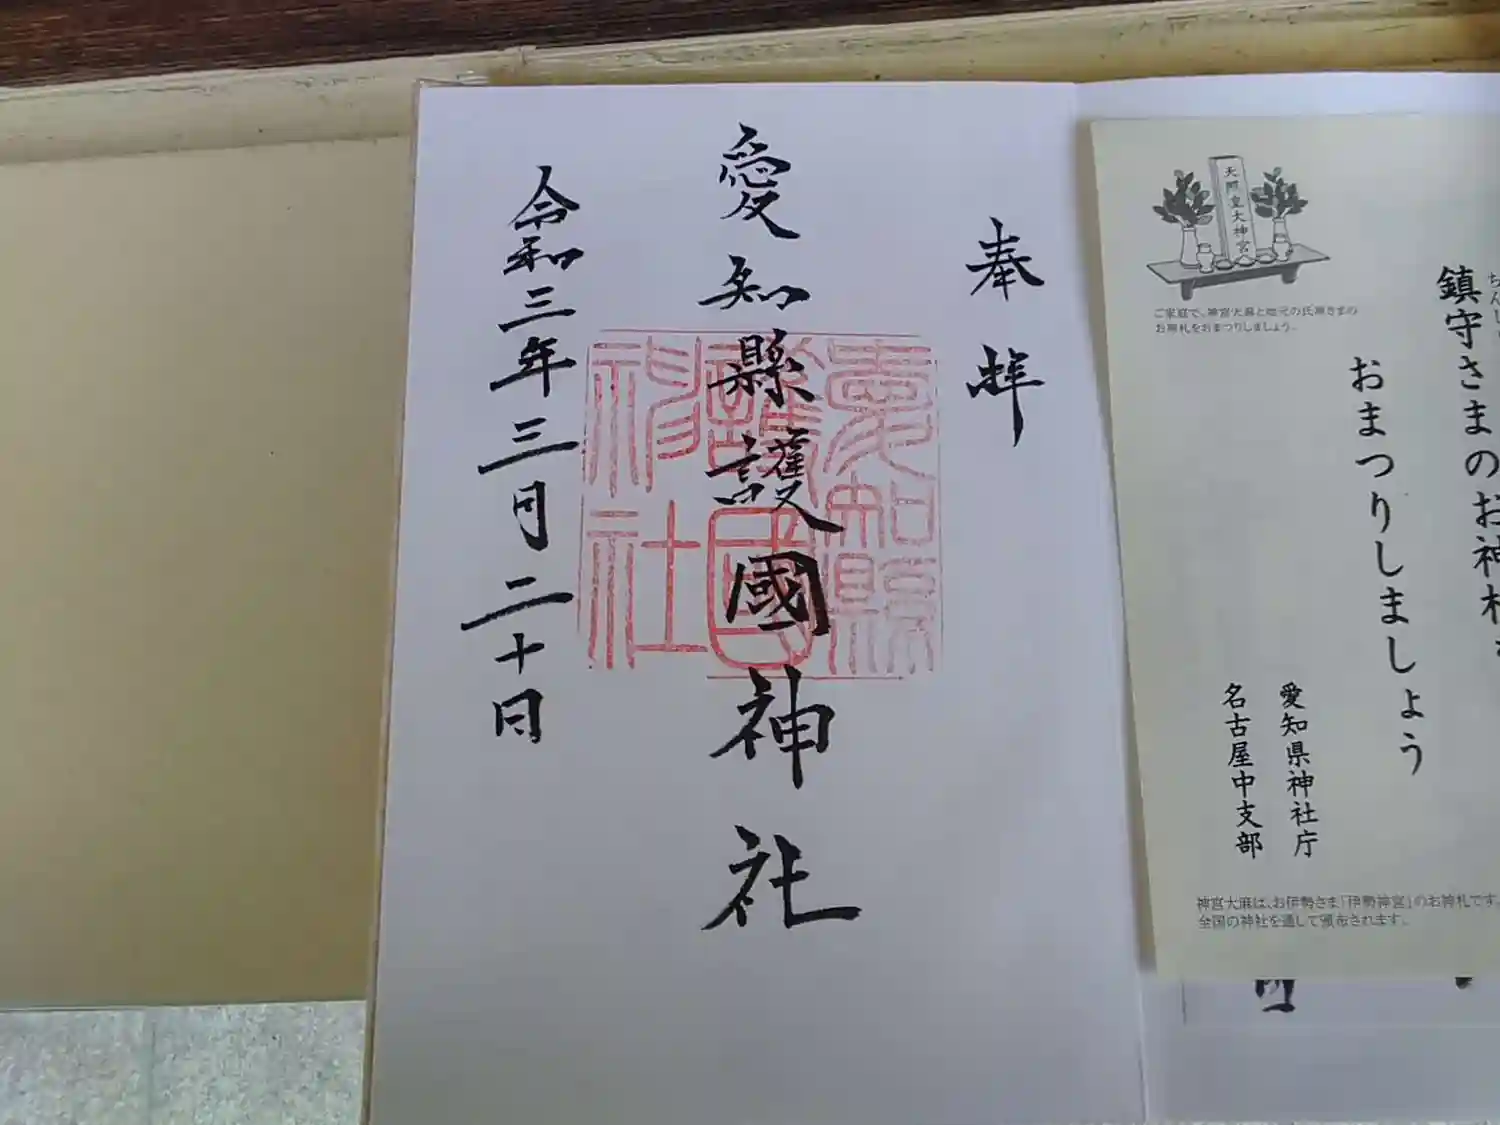 鎮守さまのお神札を
おまつりしましょう
愛知県神社庁
名古屋中支部
天照皇大神宮
ご家庭で、神宮大麻と地元の氏神さまの
お神札をおまつりしましょう。
神宮大麻は、お伊勢さま「伊勢神宮」のお神札です。
全国の神社を通して頒布されます。
奉拝
愛知縣護國神社
愛知縣
護國
神社
令和三年三月二十日